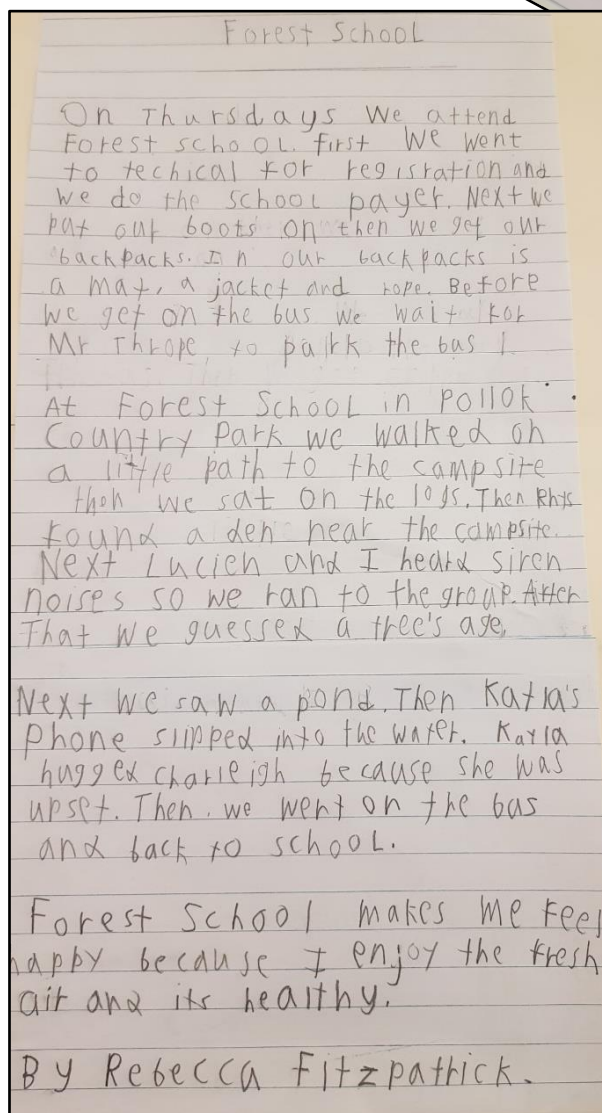 Forest School
On Thursdays We attend
Forest school. first We went
to techical for regisration and
we do the school payer. Next we
put our boots on then we get our
backpacks. In our backpacks is
a mat, a jacket and rope. Before
we get on the bus we wait for
Mr Thrope, to pairk the bus
At Forest School in Pollok
Country Park we walked on
a little path to the campsite
then we sat on the logs. Then Rhys
found a den near the campsite.
Next Lucien and I heard siren
noises so we ran to the group. After
That we guessed a tree's age.
Next we saw a pond. Then Katra's
Phone slipped into the water. Kayla
hugged charleigh because she was
upset. Then. we went on the bus
and back to school.
Forest School makes me feel
happy because I enjoy the fresh
air and its healthy.
By Rebecca Fitzpatrick.